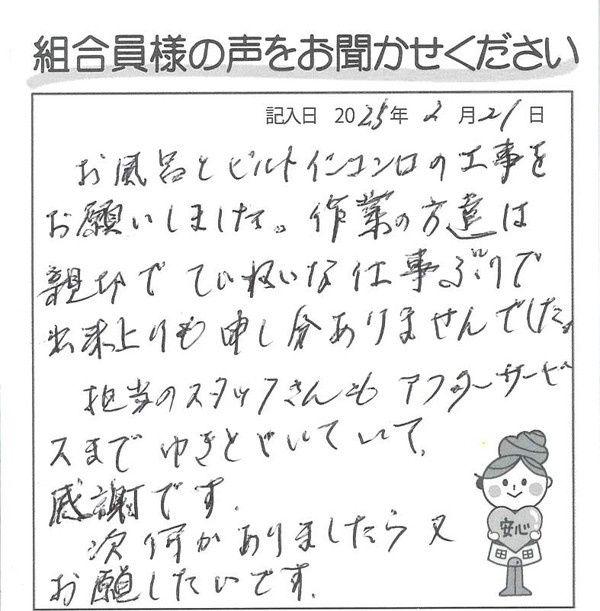 組合員様の声をお聞かせください
記入日 2025年2月21日
お風呂とビルトインコンロの工事を
お願いしました。作業の方達は
親切でていねいな仕事ぶりで
出来上りも申し分ありませんでした。
担当のスタッフさんもアフターサービ
スまでゆきとどいていて、
感謝です。
次何かありましたら又
お願したいです。
安心